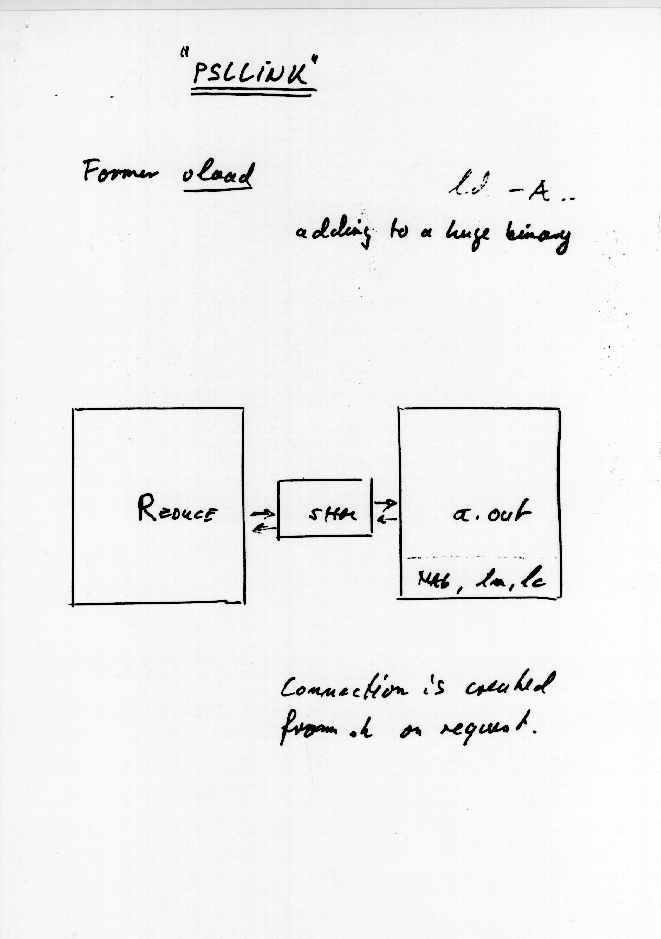 "PSLLINK"
Former oload
ld -A ..
adding to a huge binary
REDUCE
SHM
a.out
NAG, lm, lc
Connection is created
from .h on request.